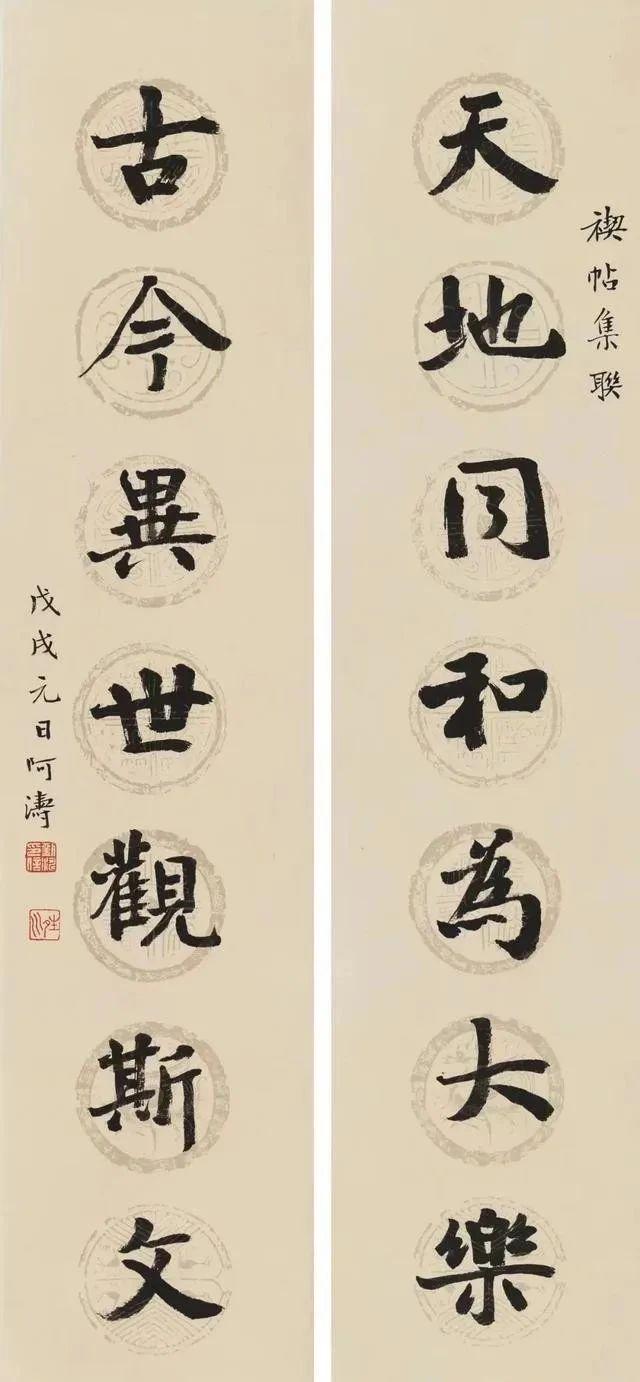 天地同和為大樂
禊帖集聯
古今異世觀斯文
戊戌元日阿濤